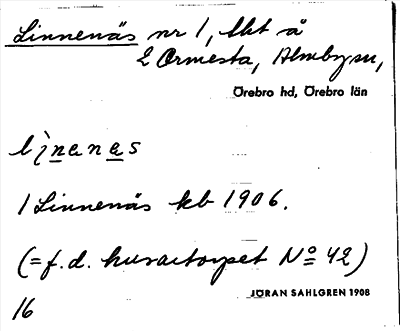 Linnenäs nr 1, lht å
2 Ormesta, Almby sn,
Örebro hd, Örebro län
lìnenas
1 Linnenäs kb 1906.
(= f.d. husartorpet No 42)
JÖRAN SAHLGREN 1908
16